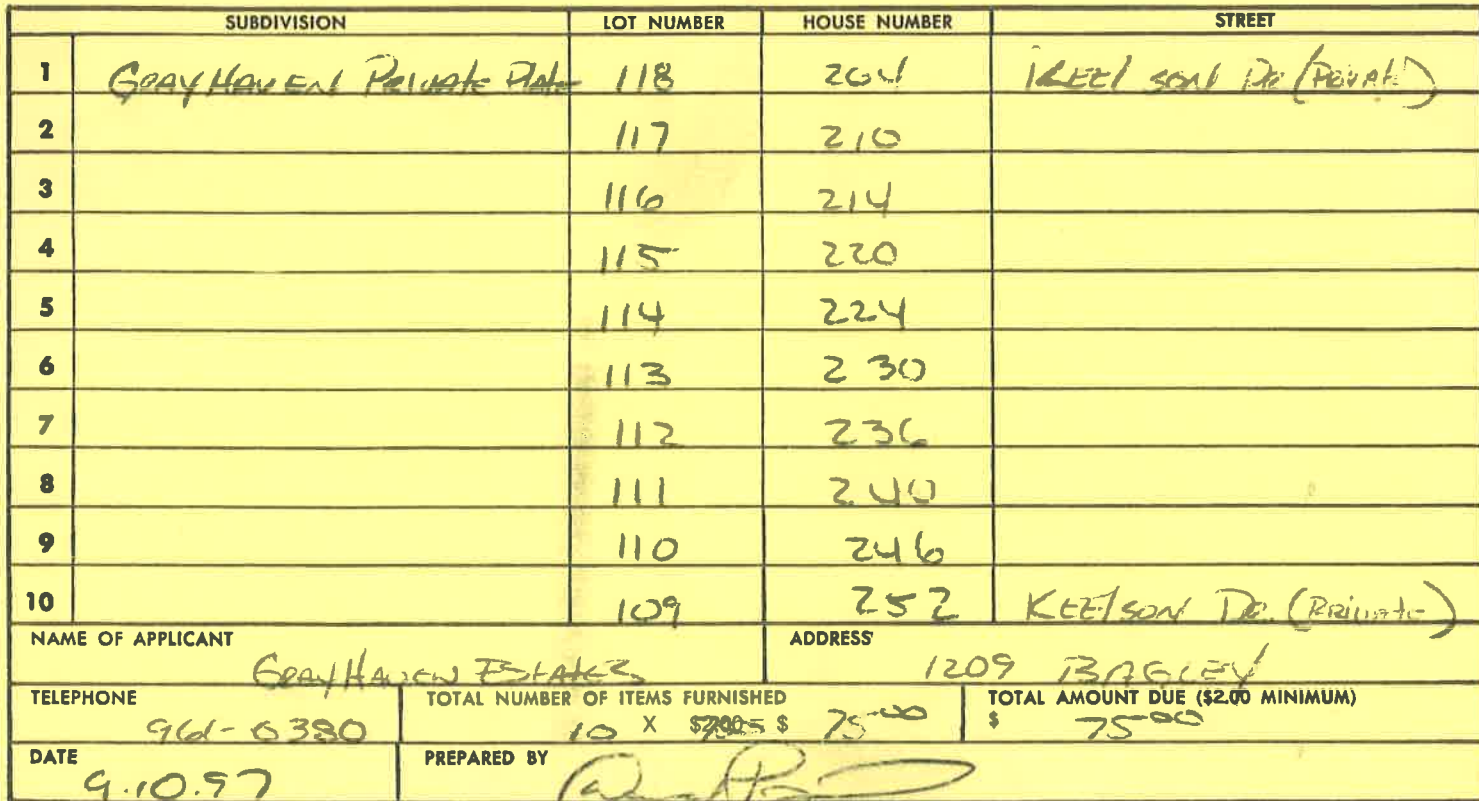 SUBDIVISION LOT NUMBER HOUSE NUMBER STREET
1 GRAYHAVEN PRIVATE Plate 118 204 KEEl SON DR. (PRIVATE)
2 117 210
3 116 214
4 115 220
5 114 224
6 113 230
7 112 236
8 111 240
9 110 246
10 109 252 KEElSON DR. (PRivate)
NAME OF APPLICANT ADDRESS
GRAYHAVEN ESTATES 1209 BAGLEY
TELEPHONE TOTAL NUMBER OF ITEMS FURNISHED TOTAL AMOUNT DUE ($2.00 MINIMUM)
961-0380 10 X $ 75.00 $ 75.00
DATE PREPARED BY
9.10.97